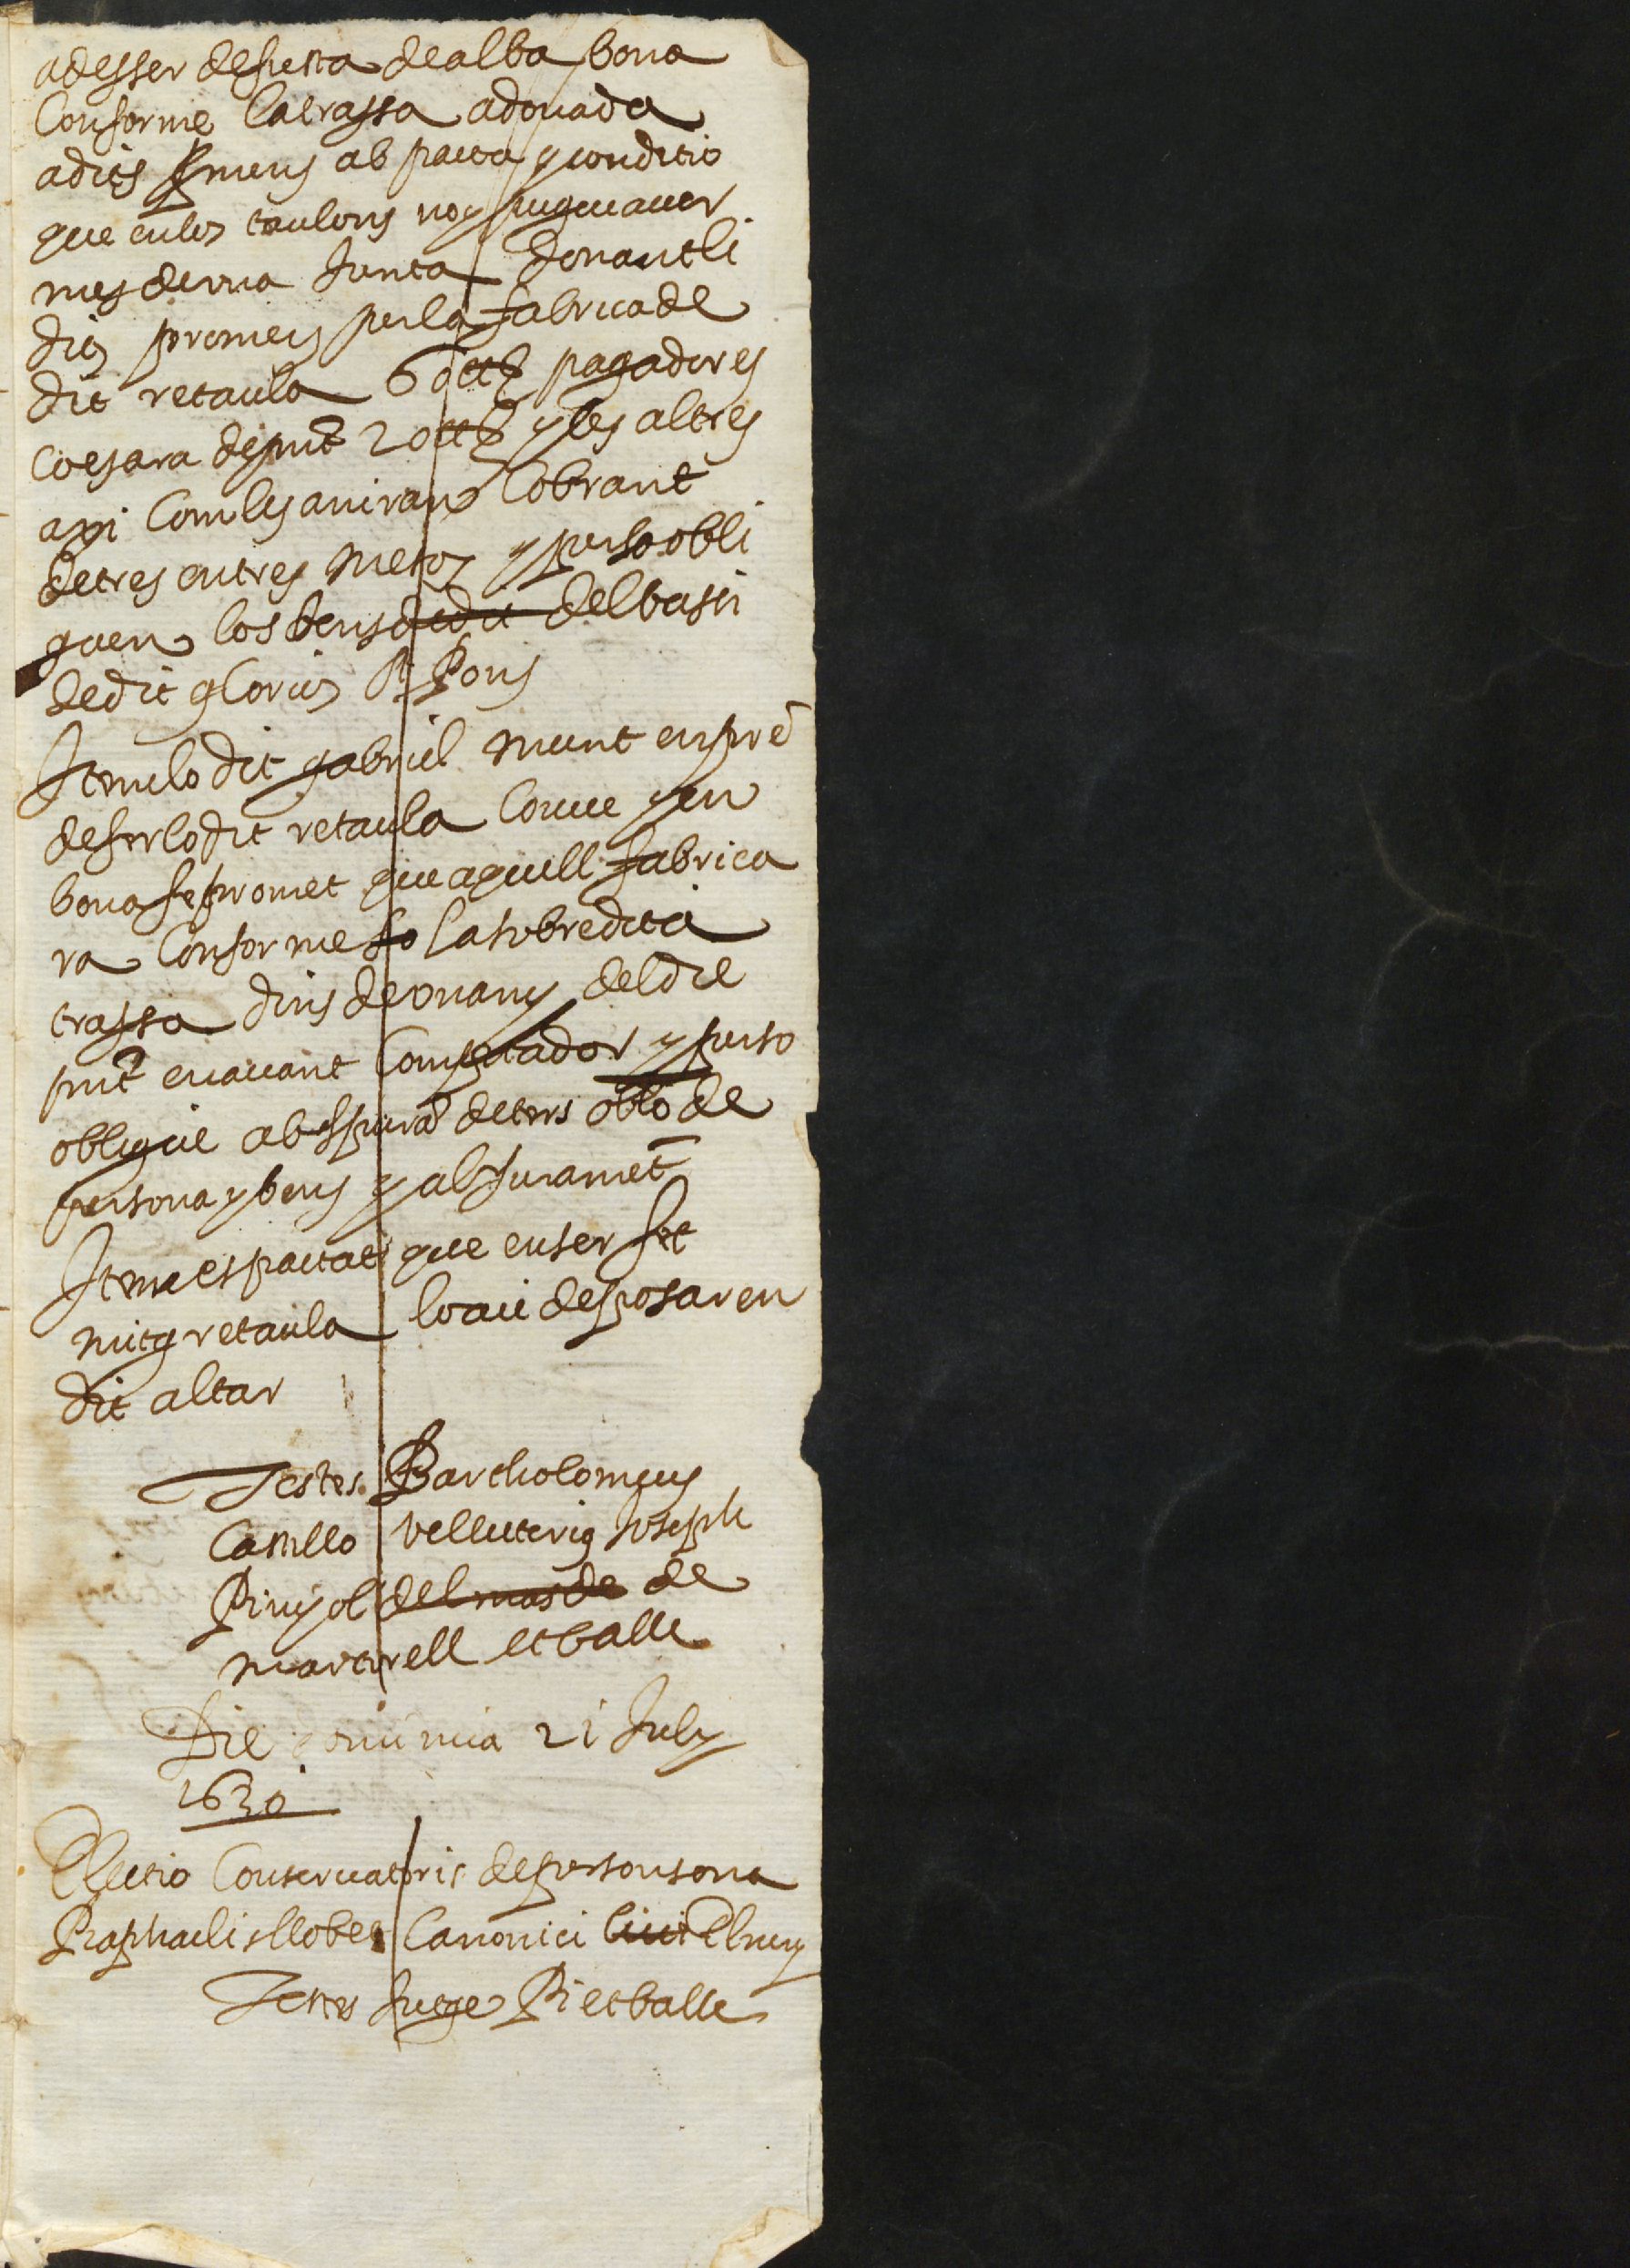 adesser defusta dealba bona
Conforme latrassa adonada
adits promens ab pacta y conditio
que enlos taulons noy pugue auer
mes deuna Junta donantli
dits promens perla fabrica de
dit retaula 60 ₶ pagadores
Coes ara de pnt 20 ₶ y les altres
axi Com les aniran Cobrant
de tres entres mesos y perso obli
guen los bens de dit del basi
de dit glorios St Pons
Item lo dit gabriel munt enpre
de fer lo dit retaula Come y en
bona fe promet que aquell fabrica
ra Conforme lo la sobredita
trassa dins de on any del die
pnt enauant Comptador y perso
obligue ab spra de ters oblo de
persona y bens y ab Jurament
Item es pactat que enser fet
mitg retaula lo aie de posar en
dit altar
Testes Bartholomeus
Casello velluterius Joseph
Pinyol del mas de de
martorell et balle
Die dominica 21 July
1630
Electio Conseruatoris de personsona
Raphaelis llobet Canonici Civit Elnen
Testes Jutge Pi et balle